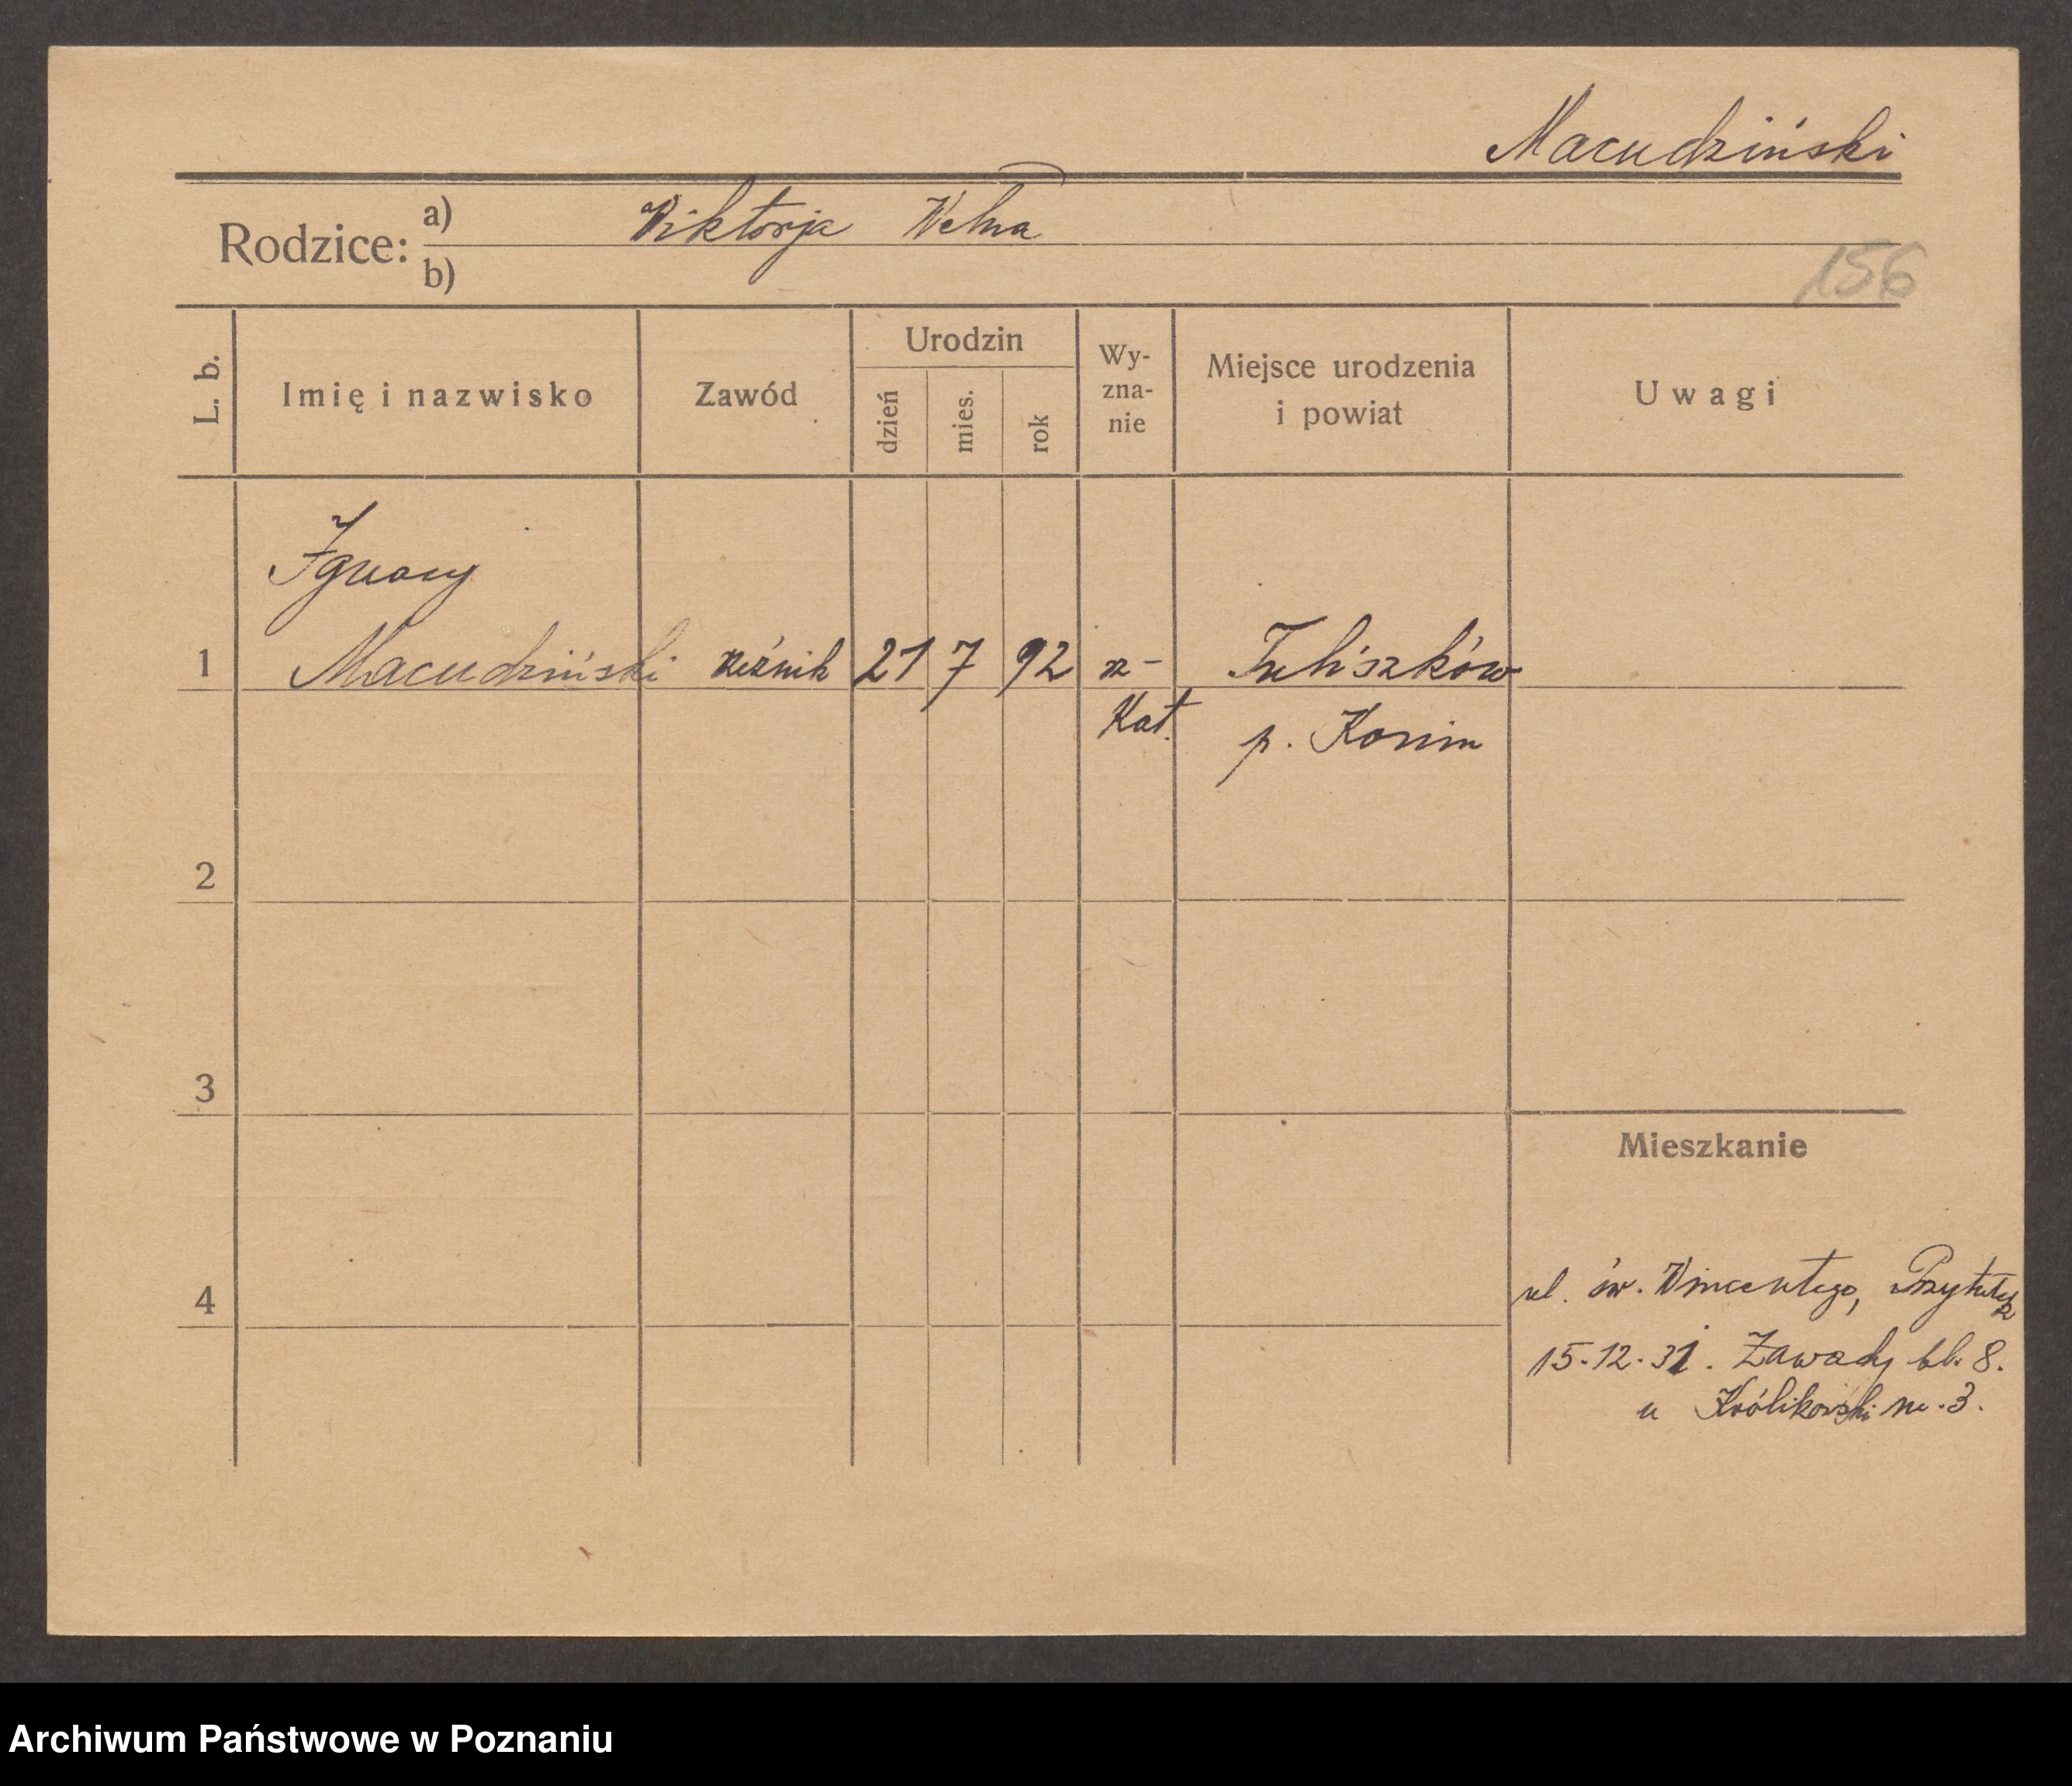 Macudziński
Rodzice: a) Wiktorja Wełna
b)
156
L. b. Imię i nazwisko Zawód Urodzin dzień mies. rok Wy-zna-nie Miejsce urodzenia i powiat Uwagi
Ignacy
1 Macudziński rzeźnik 21 7 92 rz- Tuliszków
Kat. p. Konin
2
3
Mieszkanie
4 ul. św. Wincentego, Przytułek
15.12.31. Zawady bl. 8.
u Królikowski m. 3.
Archiwum Państwowe w Poznaniu